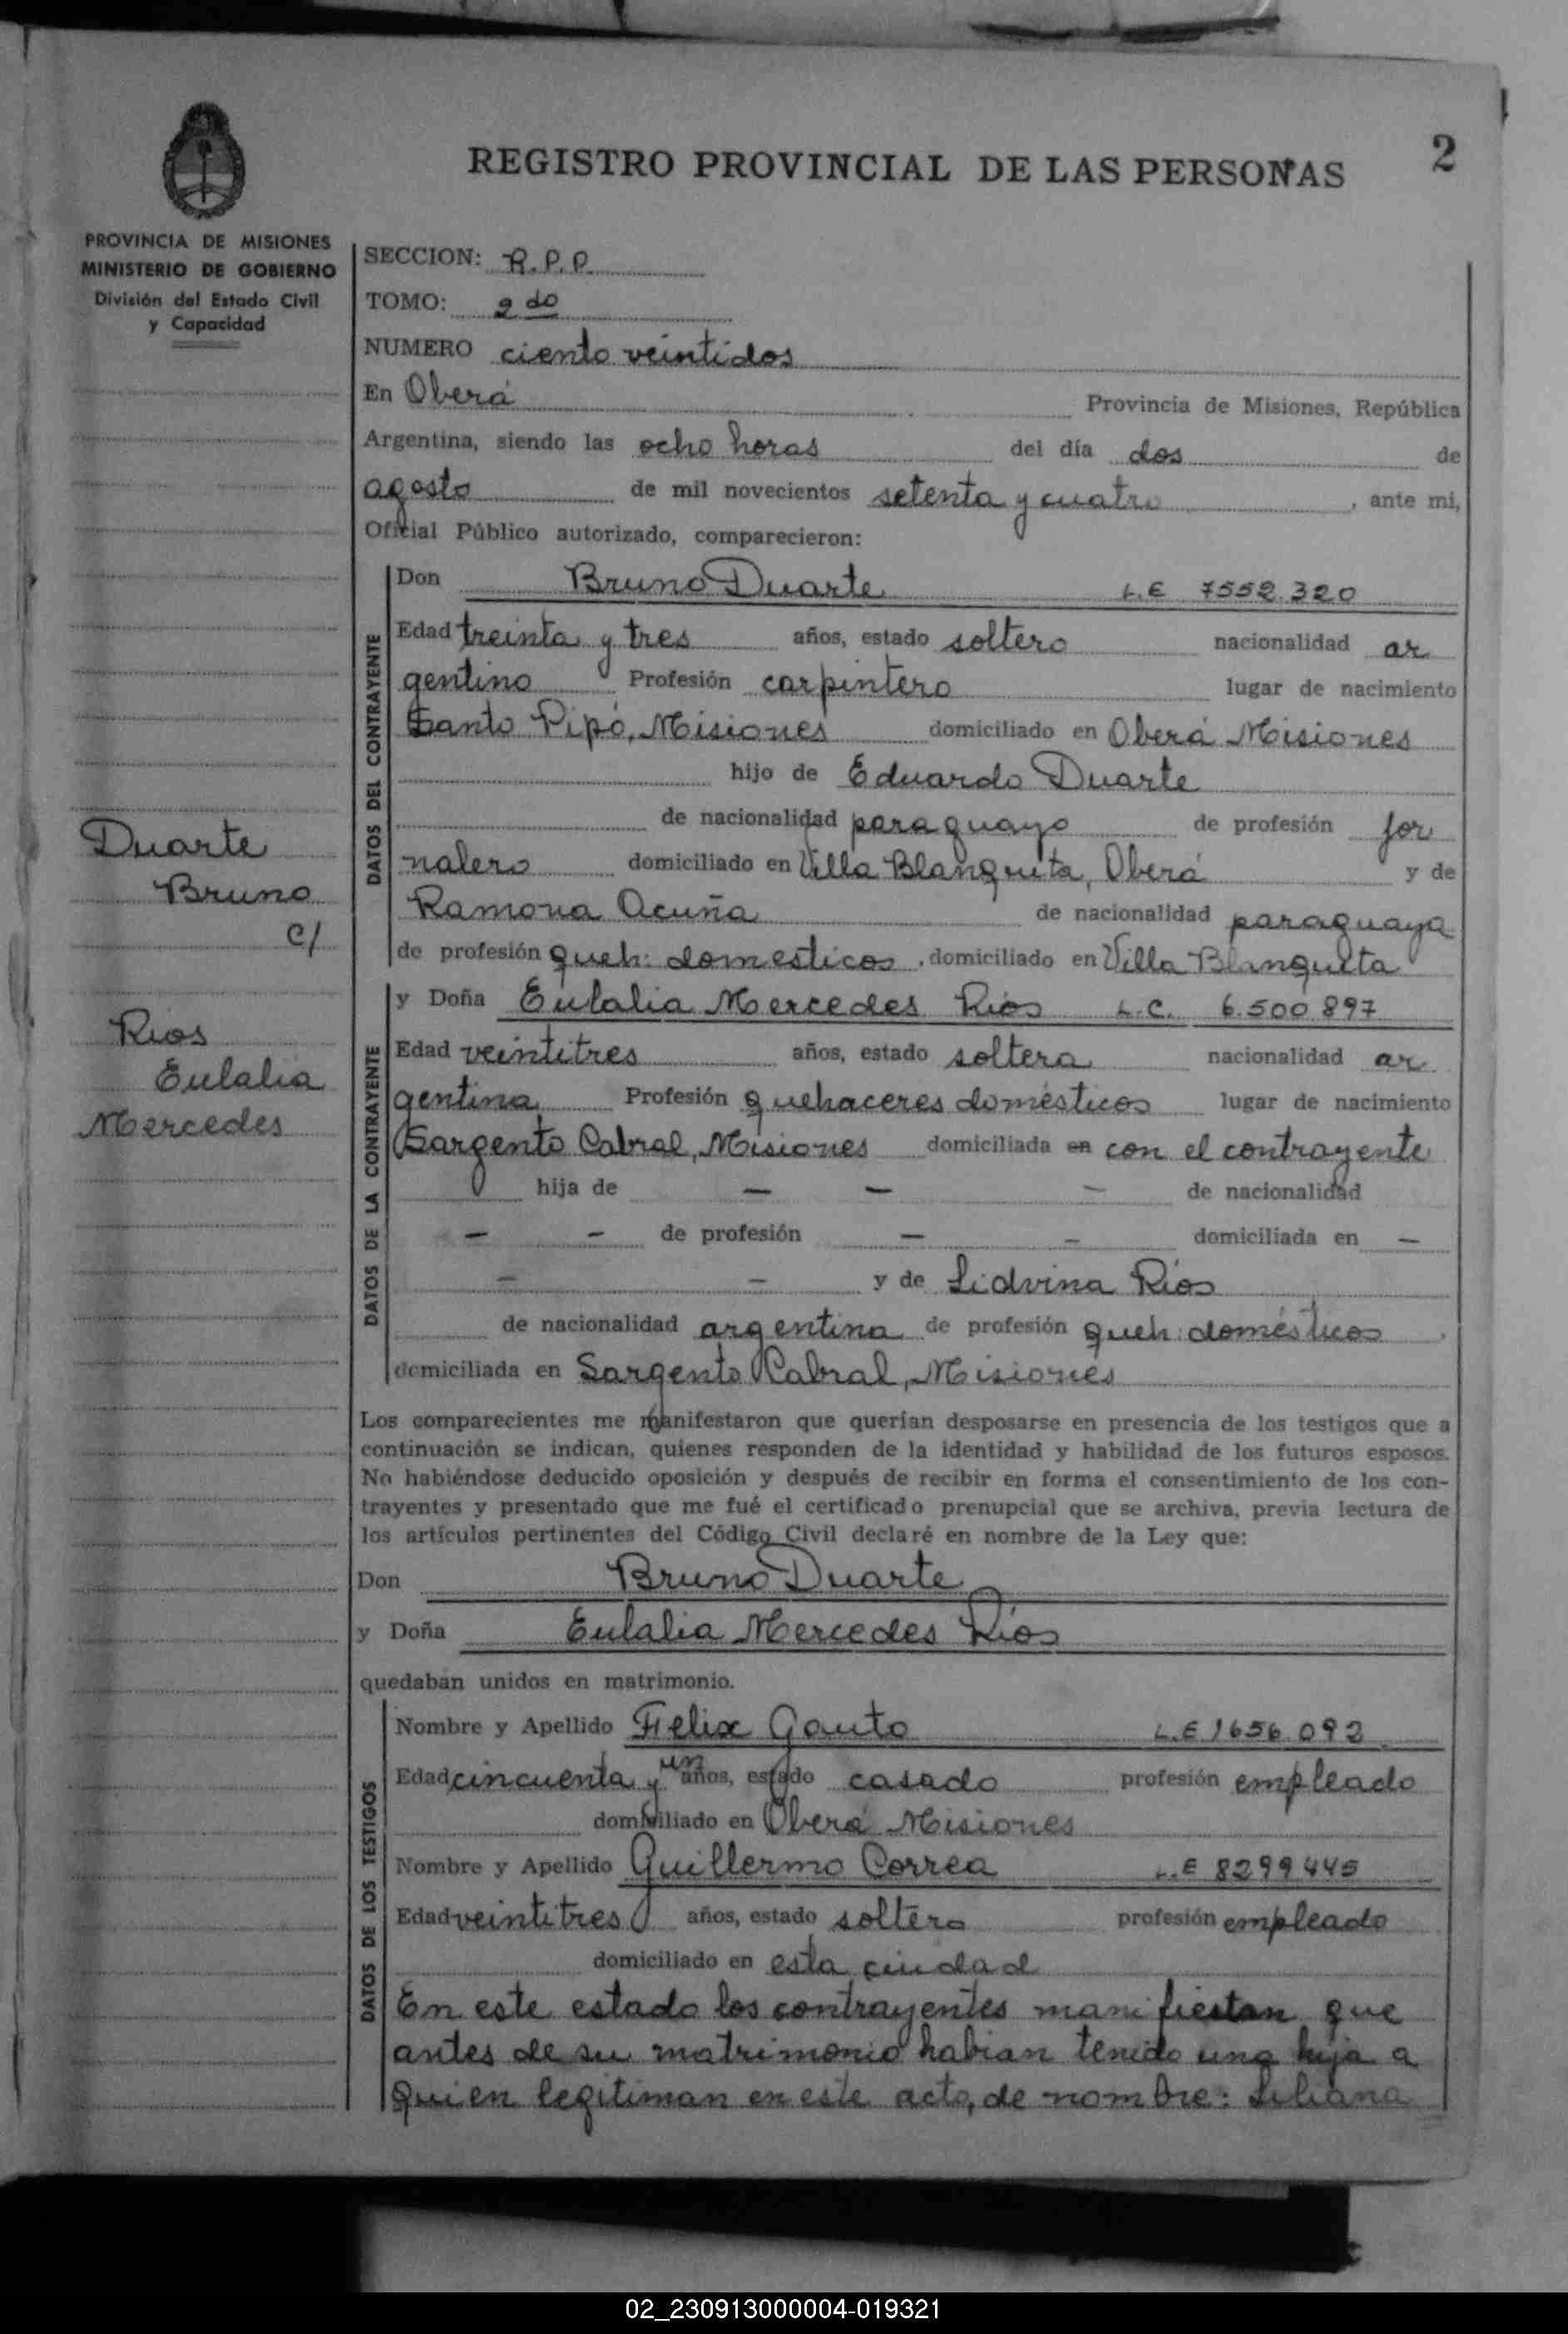 REGISTRO PROVINCIAL DE LAS PERSONAS
2
PROVINCIA DE MISIONES
MINISTERIO DE GOBIERNO
División del Estado Civil
y Capacidad
SECCION: R.P.P.
TOMO: 2do
NUMERO ciento veintidos
En Oberá Provincia de Misiones, República
Argentina, siendo las ocho horas del día dos de
agosto de mil novecientos setenta y cuatro, ante mi,
Oficial Público autorizado, comparecieron:
DATOS DEL CONTRAYENTE
Don Bruno Duarte L.E 7552.320
Edad treinta y tres años, estado soltero nacionalidad ar
gentino Profesión carpintero lugar de nacimiento
Santo Pipó, Misiones domiciliado en Oberá Misiones
hijo de Eduardo Duarte
de nacionalidad paraguayo de profesión jor
nalero domiciliado en Villa Blanquita, Oberá y de
Ramona Acuña de nacionalidad paraguaya
de profesión queh: domesticos, domiciliado en Villa Blanquita
Duarte
Bruno
c/
Rios
Eulalia
Mercedes
DATOS DE LA CONTRAYENTE
y Doña Eulalia Mercedes Rios L.C. 6.500.897
Edad veintitres años, estado soltera nacionalidad ar
gentina Profesión quehaceres domésticos lugar de nacimiento
Sargento Cabral, Misiones domiciliada en con el contrayente
hija de — — — de nacionalidad
— — de profesión — — domiciliada en —
— — y de Lidvina Rios
de nacionalidad argentina de profesión queh: domésticos
domiciliada en Sargento Cabral, Misiones
Los comparecientes me manifestaron que querían desposarse en presencia de los testigos que a
continuación se indican, quienes responden de la identidad y habilidad de los futuros esposos.
No habiéndose deducido oposición y después de recibir en forma el consentimiento de los con-
trayentes y presentado que me fué el certificado prenupcial que se archiva, previa lectura de
los artículos pertinentes del Código Civil declaré en nombre de la Ley que:
Don Bruno Duarte
y Doña Eulalia Mercedes Rios
quedaban unidos en matrimonio.
DATOS DE LOS TESTIGOS
Nombre y Apellido Felix Gauto L.E 1656.092
Edad cincuenta y un años, estado casado profesión empleado
domiciliado en Oberá Misiones
Nombre y Apellido Guillermo Correa L.E 8299445
Edad veintitres años, estado soltero profesión empleado
domiciliado en esta ciudad
En este estado los contrayentes manifiestan que
antes de su matrimonio habian tenido una hija a
quien legitiman en este acto, de nombre: Liliana
02_230913000004-019321